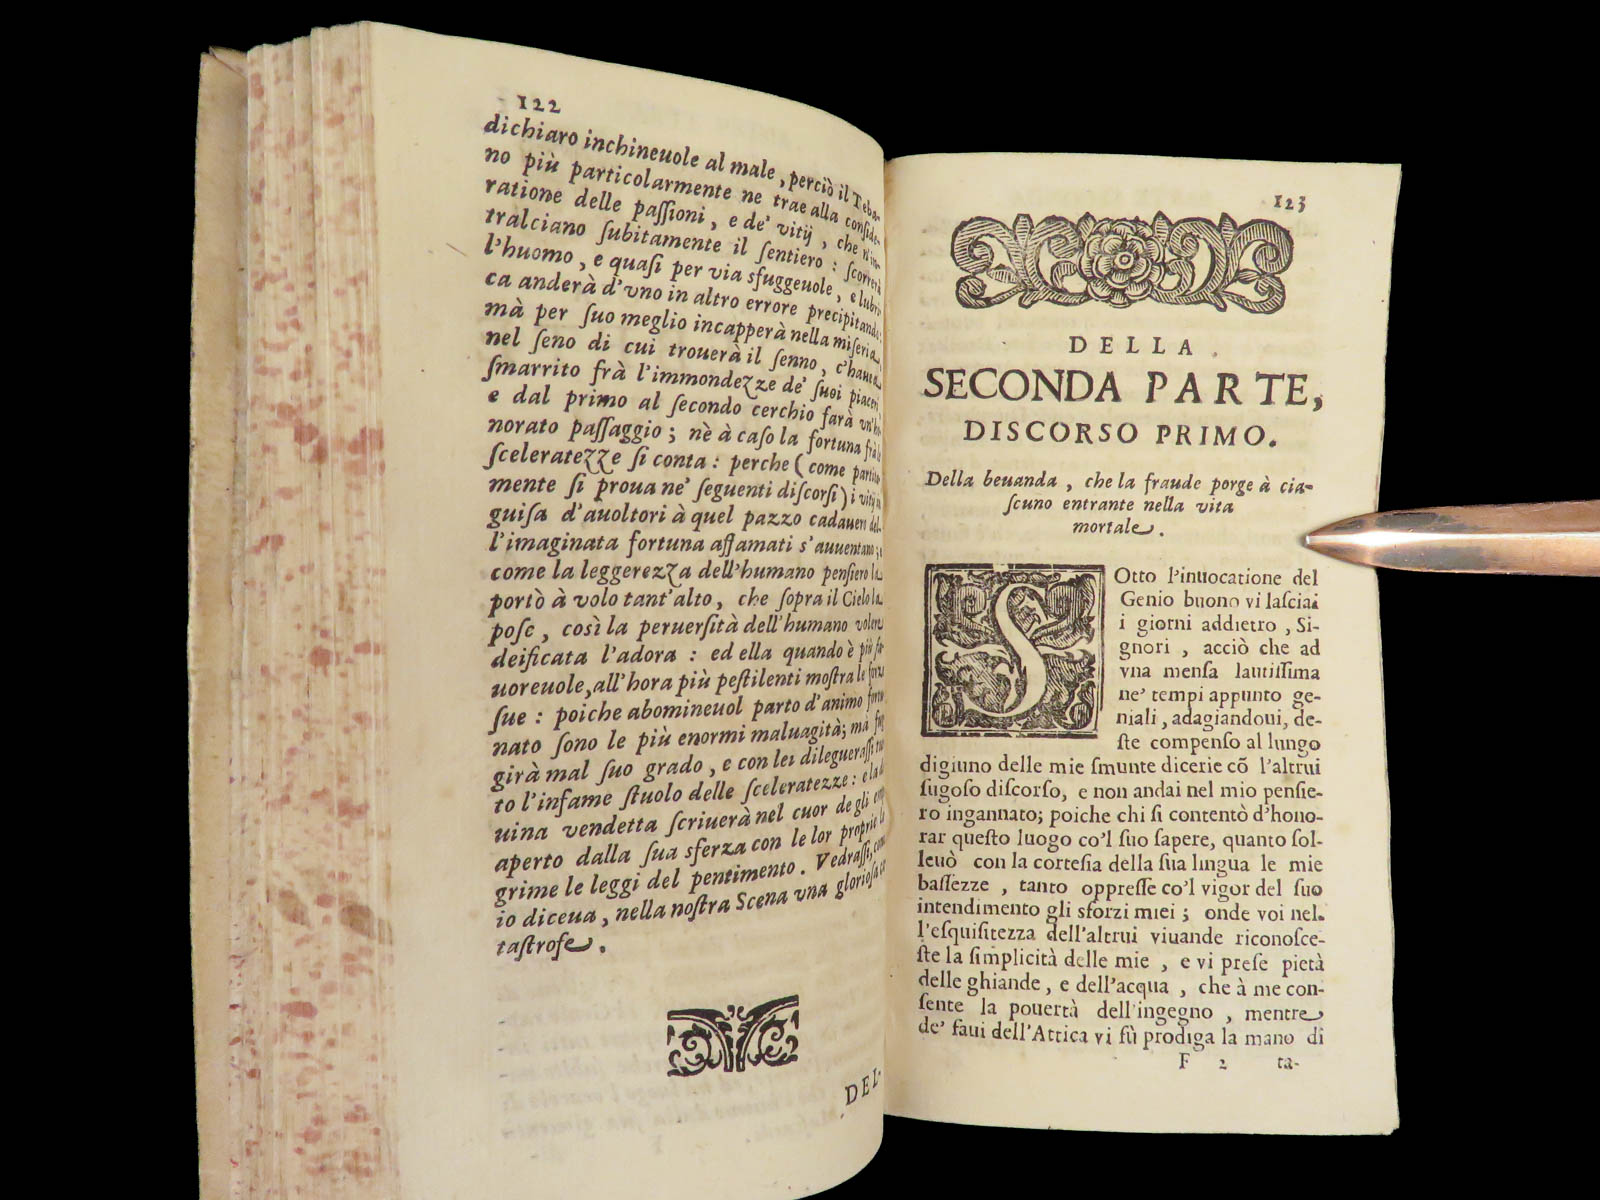 122
dichiaro inchineuole al male, perciò il Teba-
no più particolarmente ne trae alla conside-
ratione delle paſſioni, e de' vitij, che n'in-
tralciano ſubitamente il ſentiero: ſcorrerà
l'huomo, e quaſi per via sfuggeuole, e lubri-
ca anderà d'vno in altro errore precipitando:
mà per ſuo meglio incapperà nella miſeria,
nel ſeno di cui trouerà il ſenno, c'hauea
ſmarrito frà l'immondezze de' ſuoi piaceri
e dal primo al ſecondo cerchio farà vn'ho-
norato paſſaggio; nè à caſo la fortuna frà le
ſceleratezze ſi conta: perche (come partita-
mente ſi proua ne' ſeguenti diſcorſi) i vitij in
guiſa d'auoltori à quel pazzo cadauero del-
l'imaginata fortuna affamati s'auuentano; e
come la leggerezza dell'humano penſiero la
portò à volo tant'alto, che ſopra il Cielo la
poſe, così la peruerſità dell'humano volere
deificata l'adora: ed ella quando è più fa-
uoreuole, all'hora più peſtilenti moſtra le forze
ſue: poiche abomineuol parto d'animo fortu-
nato ſono le più enormi maluagità; mà fug-
girà mal ſuo grado, e con lei dileguераſſi tut-
to l'infame ſtuolo delle ſceleratezze: e la di-
uina vendetta ſcriuerà nel cuor de gli empi
aperto dalla ſua sferza con le lor proprie la-
grime le leggi del pentimento. Vedraſſi, come
io diceua, nella noſtra Scena vna glorioſa ca-
taſtrofe.
DEL-
123
DELLA
SECONDA PARTE,
DISCORSO PRIMO.
Della beuanda, che la fraude porge à cia-
ſcuno entrante nella vita
mortale.
SOtto l'inuocatione del
Genio buono vi laſciai
i giorni addietro, Si-
gnori, acciò che ad
vna menſa lautiſſima
ne' tempi appunto ge-
niali, adagiandoui, de-
ſte compenſo al lungo
digiuno delle mie ſmunte dicerie cõ l'altrui
ſugoſo diſcorſo, e non andai nel mio penſie-
ro ingannato; poiche chi ſi contentò d'hono-
rar queſto luogo co'l ſuo ſapere, quanto ſol-
leuò con la corteſia della ſua lingua le mie
baſſezze, tanto oppreſſe co'l vigor del ſuo
intendimento gli sforzi miei; onde voi nel-
l'eſquiſitezza dell'altrui viuande riconoſce-
ſte la ſimplicità delle mie, e vi preſe pietà
delle ghiande, e dell'acqua, che à me con-
ſente la pouertà dell'ingegno, mentre
de' faui dell'Attica vi fù prodiga la mano di
F 2 ta-